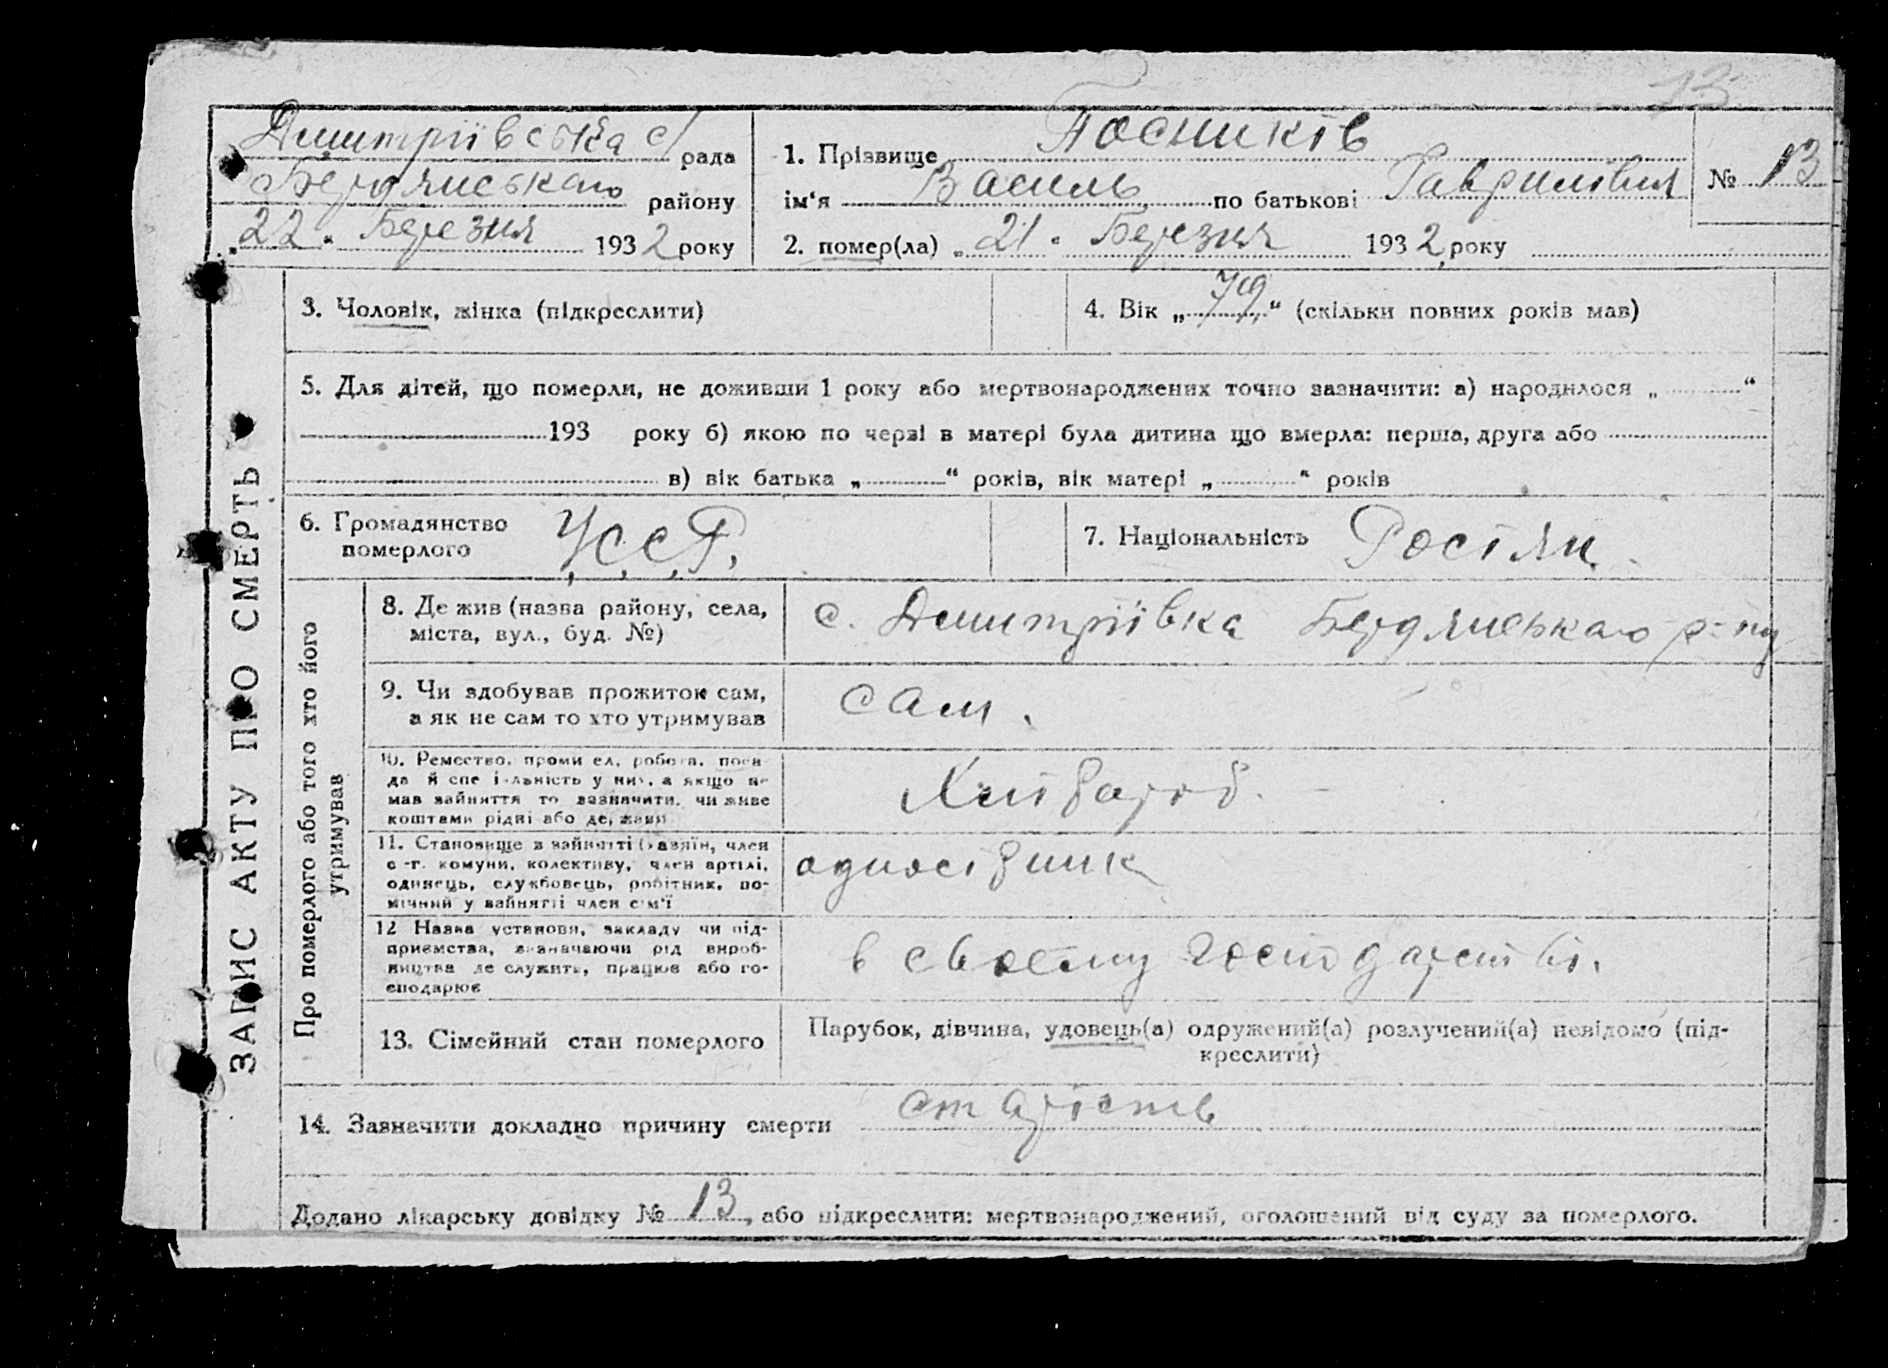 13
Дмитріївська с/рада
Бердянського району
„22" Березня 1932 року
1. Прізвище Посників
ім'я Василь по батькові Гаврилович
№ 13
2. помер(ла) „21" Березня 1932 року
ЗАПИС АКТУ ПРО СМЕРТЬ
3. Чоловік, жінка (підкреслити)
4. Вік „79" (скільки повних років мав)
5. Для дітей, що померли, не доживши 1 року або мертвонароджених точно зазначити: а) народилося „ "
193 року б) якою по черзі в матері була дитина що вмерла: перша, друга або
в) вік батька „ " років, вік матері „ " років
6. Громадянство
померлого
У.С.С.Р.
7. Національність Росіян.
Про померлого або того хто його
утримував
8. Де жив (назва району, села,
міста, вул., буд. №)
с. Дмитріївка Бердянського р-ну
9. Чи здобував прожиток сам,
а як не сам то хто утримував
сам.
10. Ремество, промисел, робота, поса-
да й спеціяльність у них, а якщо не
мав зайняття то зазначити, чи живе
коштами рідні або держави
Хлібороб.
11. Становище в зайнятті (хазяїн, член
с.-г. комуни, колективу, член артілі,
одинець, службовець, робітник, по-
мічний у зайнятті член сім'ї
одноосібник
12 Назва установи, закладу чи під-
приємства, зазначаючи рід вироб-
ництва де служить, працює або го-
сподарює
в своєму господарстві.
13. Сімейний стан померлого
Парубок, дівчина, удовець(а) одружений(а) розлучений(а) невідомо (під-
креслити)
14. Зазначити докладно причину смерти старість
Додано лікарську довідку № 13, або підкреслити: мертвонароджений, оголошений від суду за померлого.